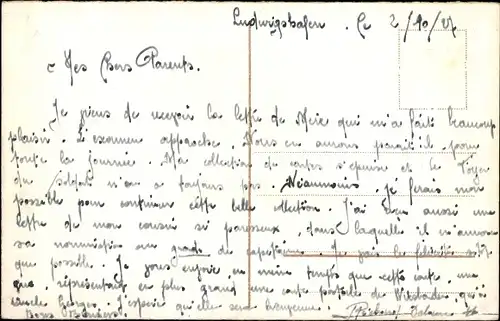 Ludwigshafen. le 2/10/27
Mes Chers Parents.
Je viens de recevoir la lettre de Mère qui m'a fait beaucoup
plaisir. L'examen approche. Nous en aurons paraît-il pour
toute la journée. Ma collection de cartes s'épuise et le Foyer
du Soldat n'en a toujours pas. Néanmoins je ferais mon
possible pour continuer cette belle collection. J'ai reçu aussi une
lettre de mon cousin si paresseux, dans laquelle il m'annonce
sa nomination au grade de capitaine. Je vais le féliciter
que possible. Je vous envoie en même temps que cette carte une
que représentant en plus grand une carte postale de Wiesbaden qu'a
Georges. J'espère qu'elle sera bienvenue.
Bons Baisers